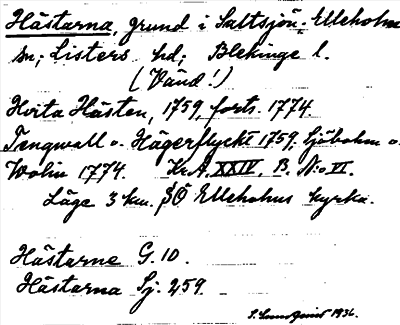 Hästarna, grund i Saltsjön; Elleholms
sn; Listers hd; Blekinge l.
(Vänd!)
Hvita Hästen, 1759, forts. 1774
Tengwall o. Hägerflyckt 1759. Sjöbohm o.
Wolin 1774. Kr.A. XXIV. B. N:o VI.
Läge 3 km. SÖ Elleholms kyrka.
Hästarne G. 10.
Hästarna Sj. 259.
S. Lundqvist 1936.